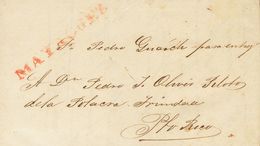 MAYAGUEZ
Sr. Pedro para entregar
A Dn. Pedro J. Oliver Piloto
de la Polacra Trinidad
Pto Rico